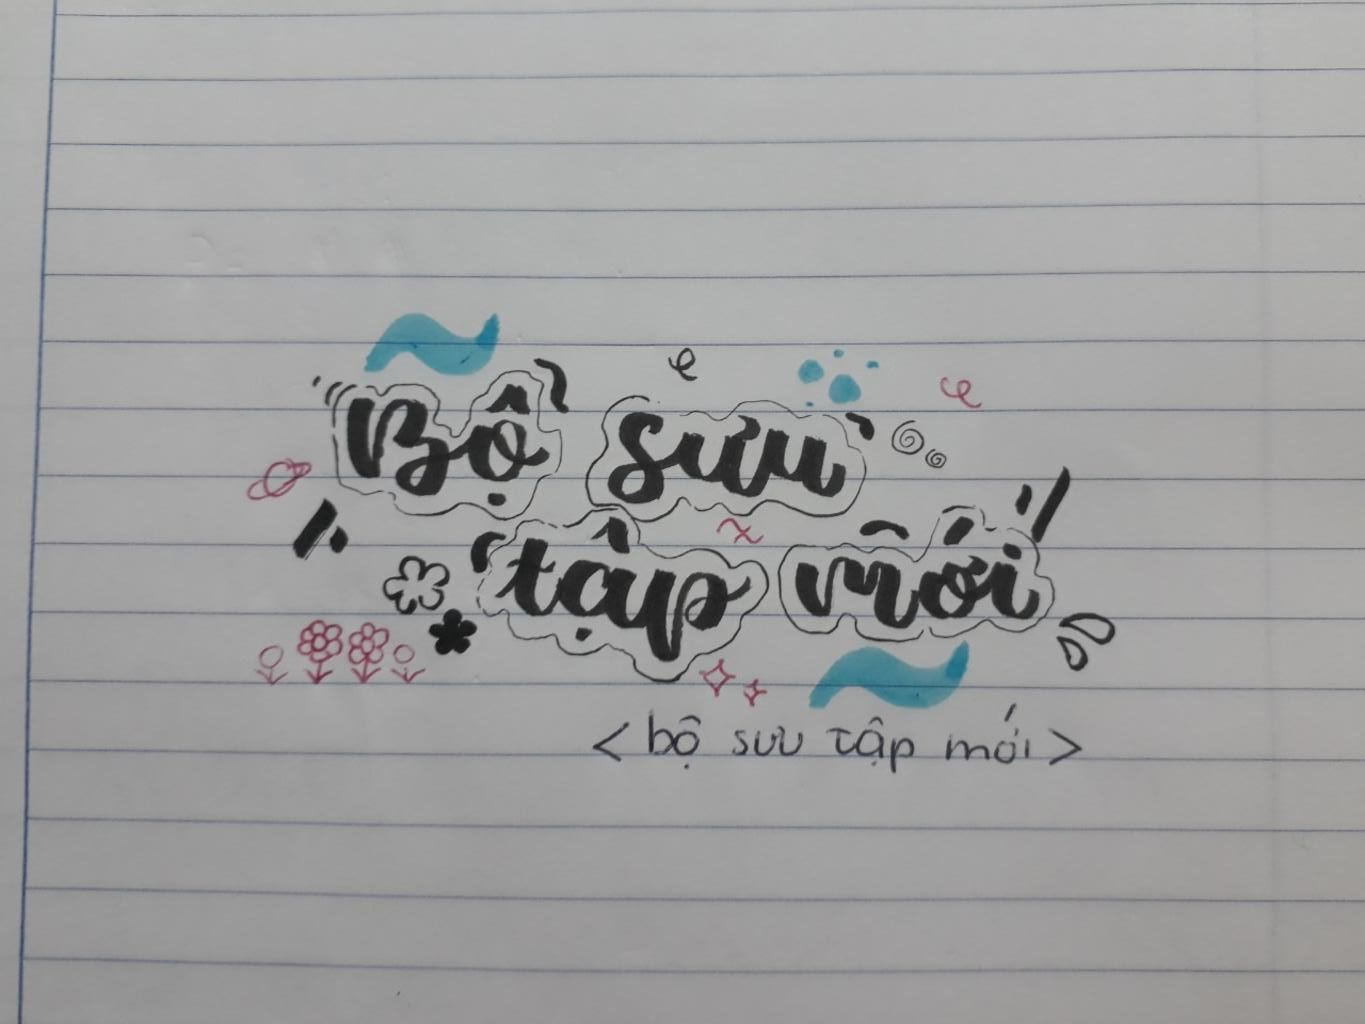 Bộ sưu
tập mới
<bộ sưu tập mới>